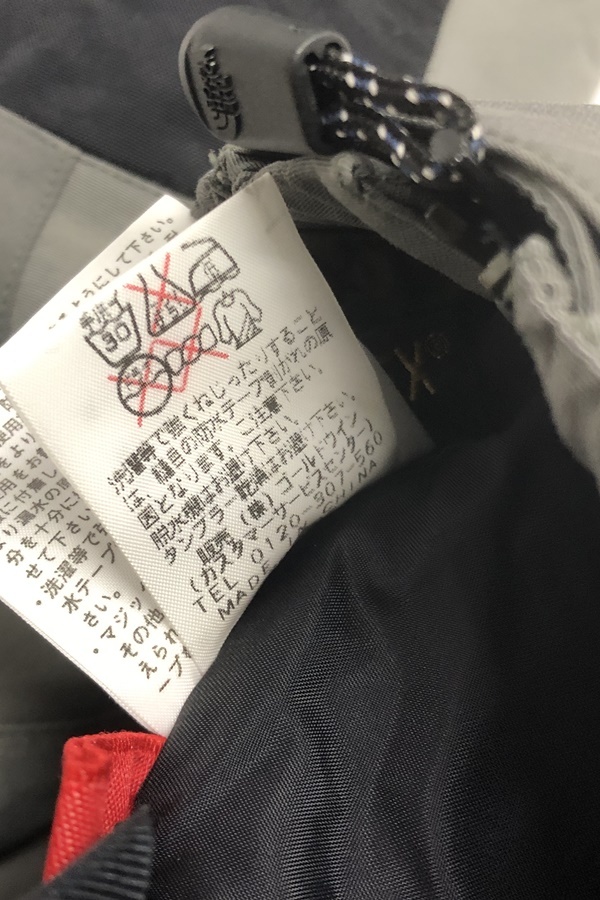 ようにして下さい。
手洗イ
30
洗濯等で強くねじったりすること
は、縫目の防水テープ剥がれの原
因となります。ご注意下さい。
貯水槽はお避け下さい。
タンブラー乾燥はお避け下さい。
販売 (株)ゴールドウイン
(カスタマーサービスセンター)
TEL 0120-307-560
MADE CHINA
使用
をより
用をお
に付着し
漏水の原
分を十分に
せて下さ
・洗濯等で
水テープ
さい。
・マジッ
その他
えられ
ープを
X®